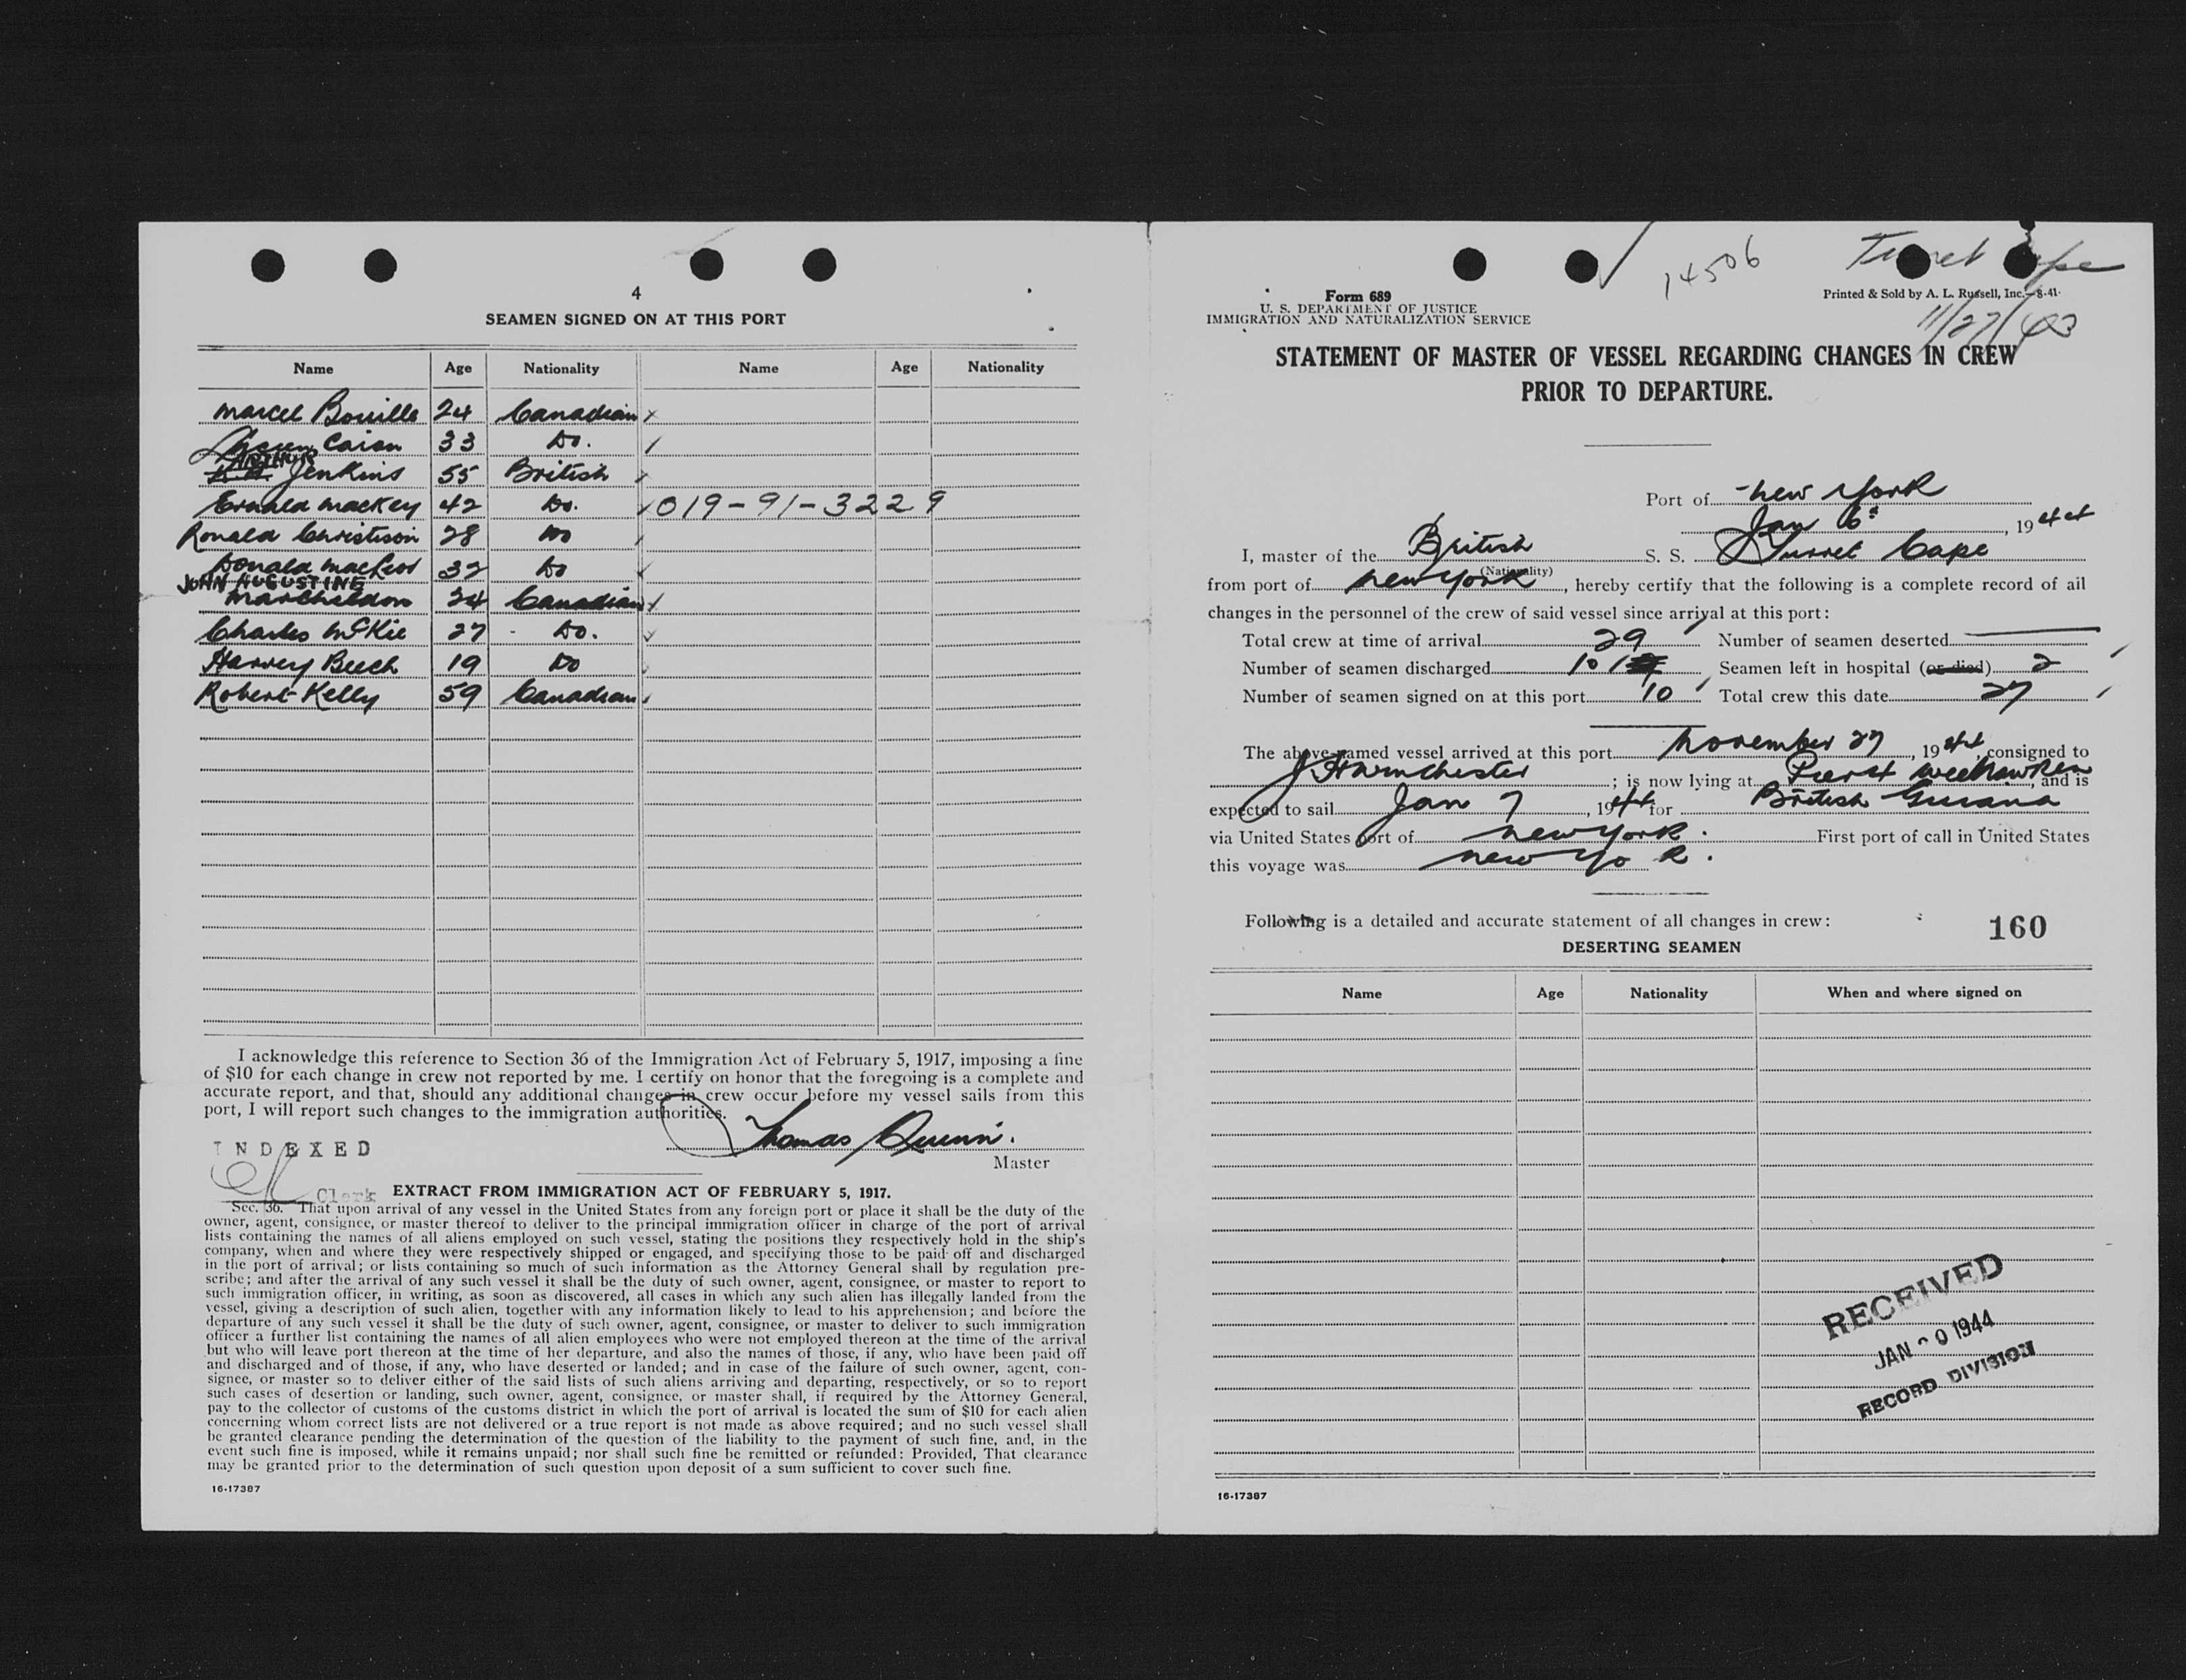 4
SEAMEN SIGNED ON AT THIS PORT
Name Age Nationality Name Age Nationality
Marcel 24 Canadian
Caron 33 Do.
ARTHUR
Jenkins 55 British
Mackey 42 Do. 019-91-3229
Ronald Christison 28 Do
Donald MacLeod 32 Do
JOHN AUGUSTINE
24 Canadian
Charles McKie 27 - Do.
Harvey Beech 19 Do
Robert Kelly 59 Canadian
I acknowledge this reference to Section 36 of the Immigration Act of February 5, 1917, imposing a fine
of $10 for each change in crew not reported by me. I certify on honor that the foregoing is a complete and
accurate report, and that, should any additional changes in crew occur before my vessel sails from this
port, I will report such changes to the immigration authorities.
Thomas Quinn.
Master
INDEXED
Clerk
EXTRACT FROM IMMIGRATION ACT OF FEBRUARY 5, 1917.
Sec. 36. That upon arrival of any vessel in the United States from any foreign port or place it shall be the duty of the
owner, agent, consignee, or master thereof to deliver to the principal immigration officer in charge of the port of arrival
lists containing the names of all aliens employed on such vessel, stating the positions they respectively hold in the ship's
company, when and where they were respectively shipped or engaged, and specifying those to be paid off and discharged
in the port of arrival; or lists containing so much of such information as the Attorney General shall by regulation pre-
scribe; and after the arrival of any such vessel it shall be the duty of such owner, agent, consignee, or master to report to
such immigration officer, in writing, as soon as discovered, all cases in which any such alien has illegally landed from the
vessel, giving a description of such alien, together with any information likely to lead to his apprehension; and before the
departure of any such vessel it shall be the duty of such owner, agent, consignee, or master to deliver to such immigration
officer a further list containing the names of all alien employees who were not employed thereon at the time of the arrival
but who will leave port thereon at the time of her departure, and also the names of those, if any, who have been paid off
and discharged and of those, if any, who have deserted or landed; and in case of the failure of such owner, agent, con-
signee, or master so to deliver either of the said lists of such aliens arriving and departing, respectively, or so to report
such cases of desertion or landing, such owner, agent, consignee, or master shall, if required by the Attorney General,
pay to the collector of customs of the customs district in which the port of arrival is located the sum of $10 for each alien
concerning whom correct lists are not delivered or a true report is not made as above required; and no such vessel shall
be granted clearance pending the determination of the question of the liability to the payment of such fine, and, in the
event such fine is imposed, while it remains unpaid; nor shall such fine be remitted or refunded: Provided, That clearance
may be granted prior to the determination of such question upon deposit of a sum sufficient to cover such fine.
16-17387
14506
Turret Cape
11/27/43
Form 689
U. S. DEPARTMENT OF JUSTICE
IMMIGRATION AND NATURALIZATION SERVICE
Printed & Sold by A. L. Russell, Inc.—8-41
STATEMENT OF MASTER OF VESSEL REGARDING CHANGES IN CREW
PRIOR TO DEPARTURE.
Port of New York
Jan 6, 1944
I, master of the British S. S. Turret Cape
(Nationality)
from port of New York, hereby certify that the following is a complete record of all
changes in the personnel of the crew of said vessel since arriyal at this port:
Total crew at time of arrival 29 Number of seamen deserted
Number of seamen discharged 10 Seamen left in hospital (or died) 2
Number of seamen signed on at this port 10 Total crew this date 27
The above-named vessel arrived at this port November 27, 1944 consigned to
; is now lying at Pier 4 Weehawken, and is
expected to sail Jan 7, 1944 for British Guiana
via United States port of New York. First port of call in United States
this voyage was New Yo R.
Following is a detailed and accurate statement of all changes in crew:
160
DESERTING SEAMEN
Name Age Nationality When and where signed on
RECEIVED
JAN 0 1944
RECORD DIVISION
16-17387